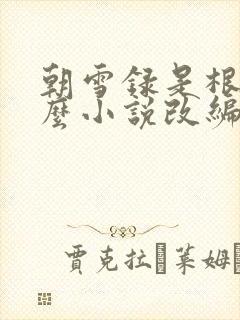 朝雪録是根
麼小說改編
賈克拉 萊姆